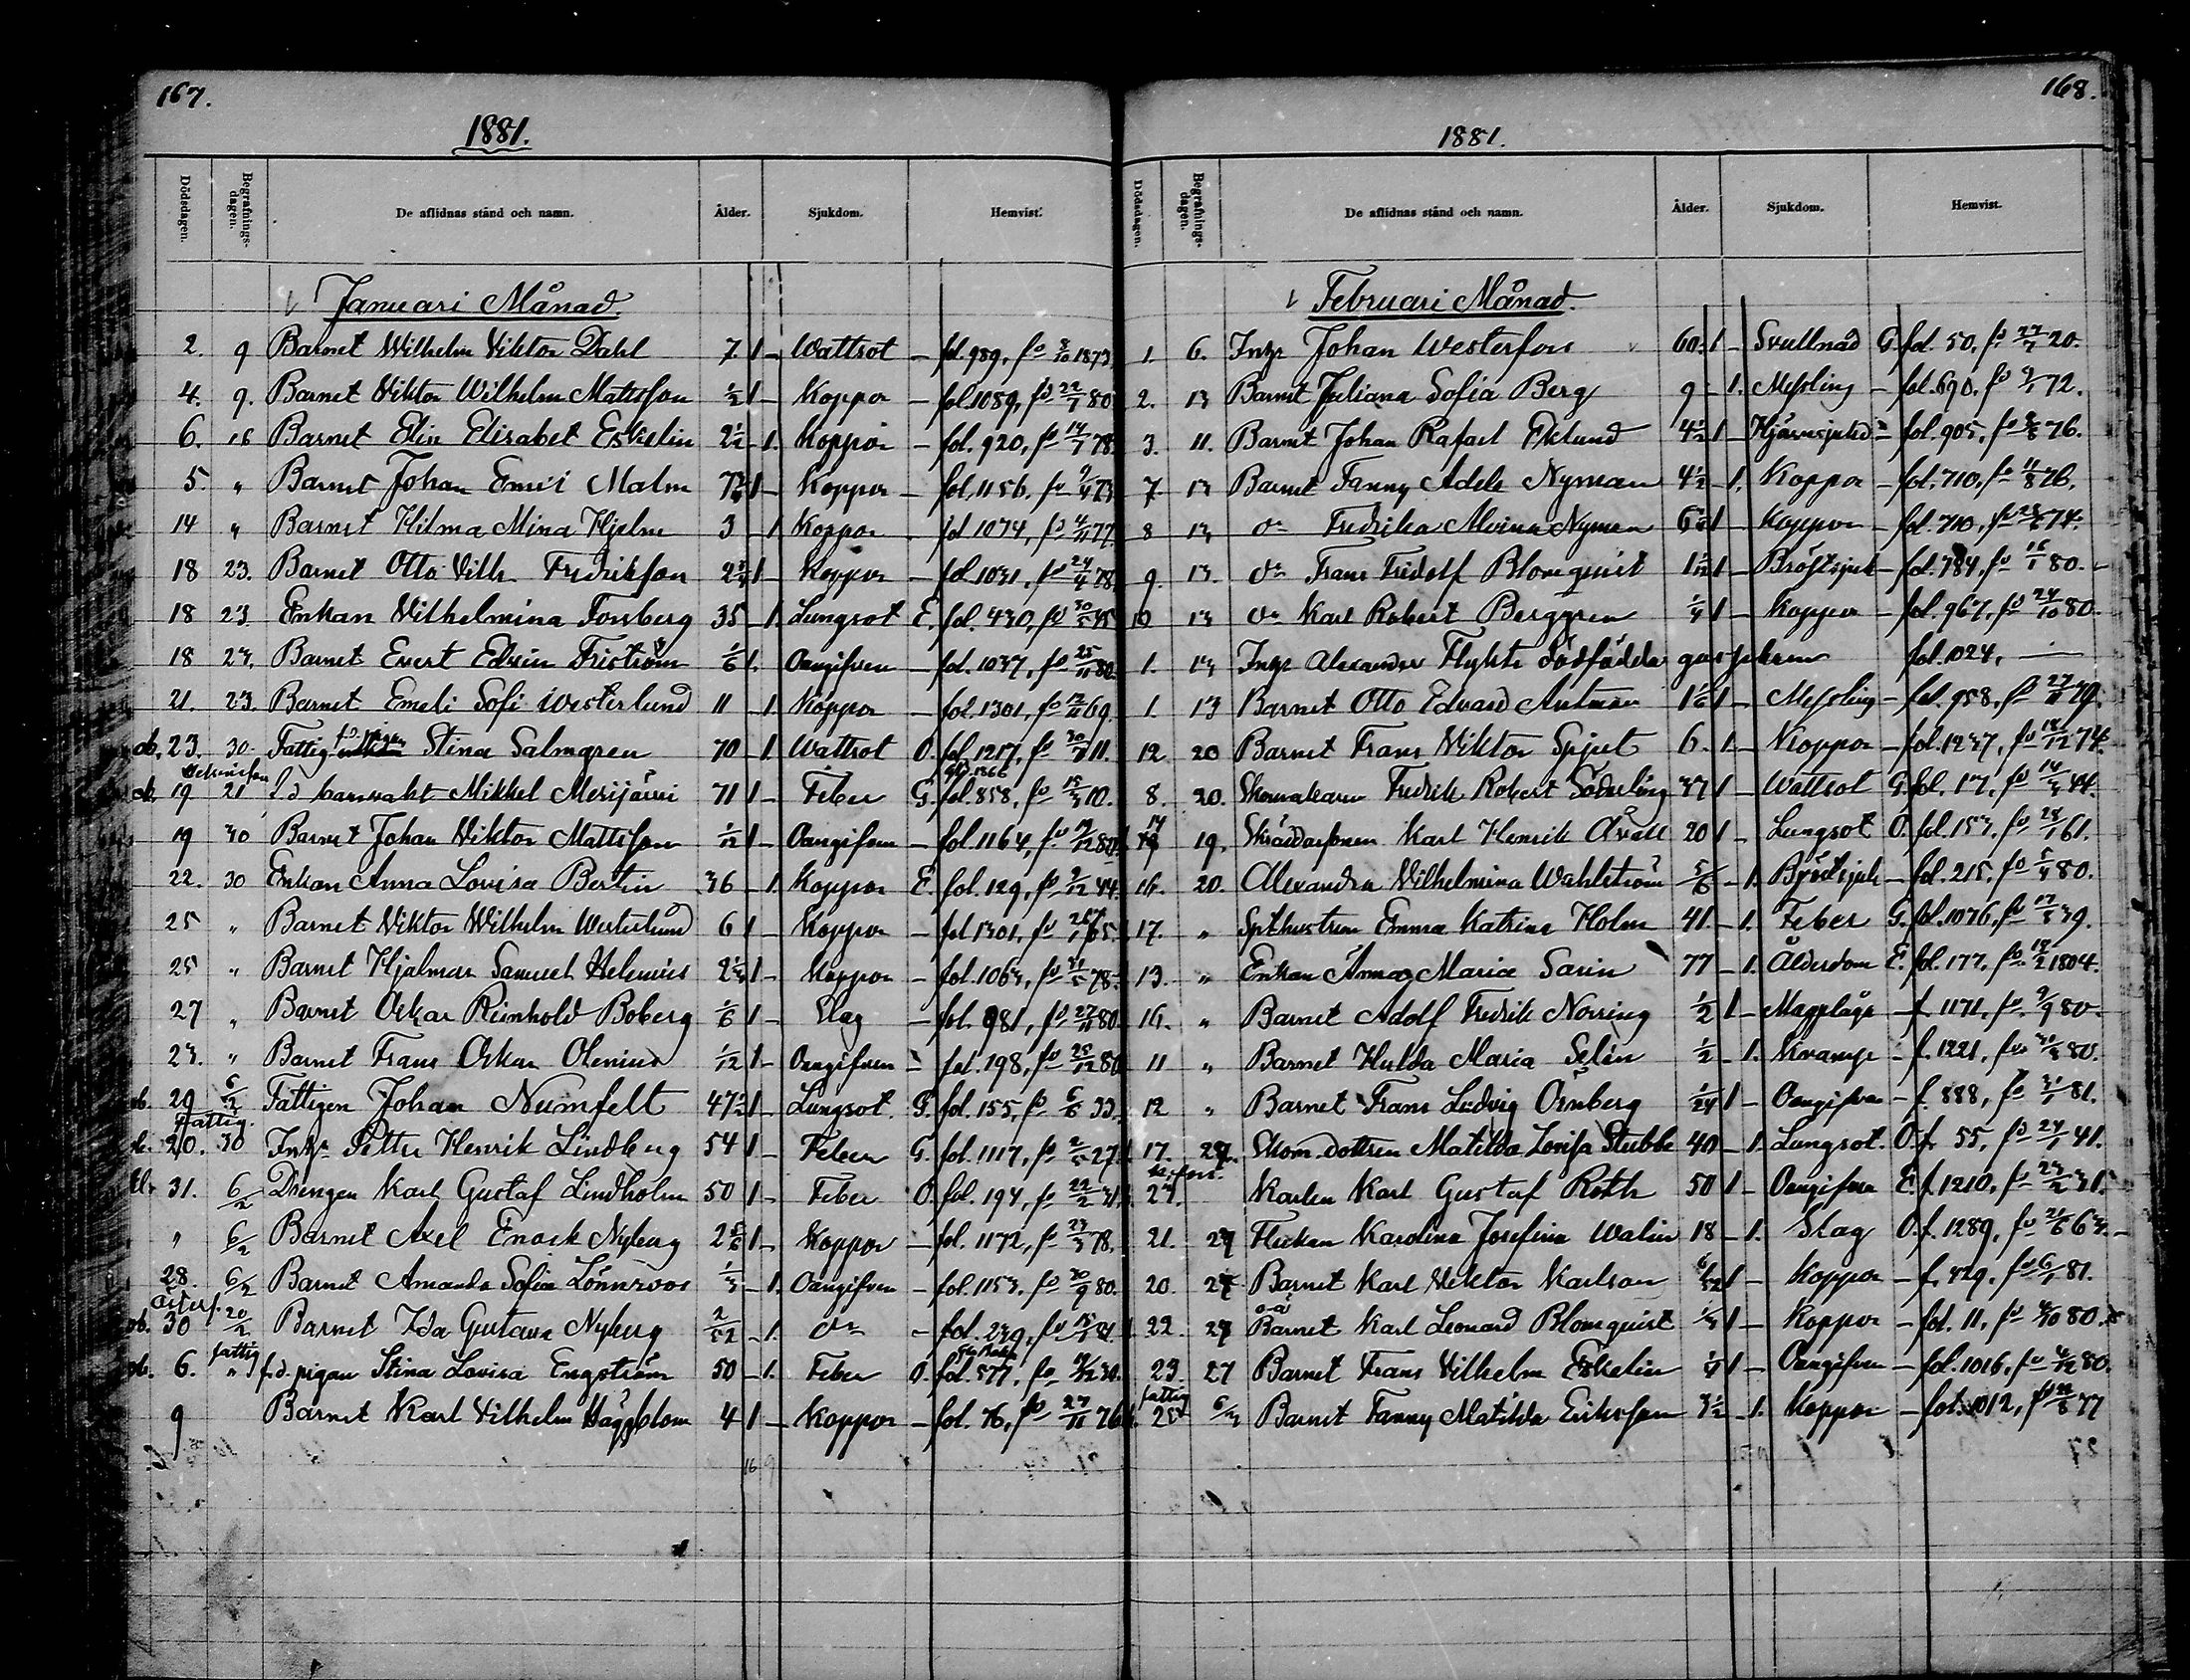 167.
1881.
Dödsdagen. Begrafnings-dagen. De aflidnas stånd och namn. Ålder. Sjukdom. Hemvist.
Januari Månad.
2. 9 Barnet Wilhelm Viktor Dahl 7 1 – Wattsot – fol. 989, fd 3/10 1873
4. 9. Barnet Viktor Wilhelm Mattsson 1/2 1 – Koppor – fol. 1089, fd 22/7 80
6. 16 Barnet Elin Elisabet Eskelin 2 1/2 – 1. Koppor – fol. 920, fd 14/7 78.
5. " Barnet Johan Emil Malm 7 1 – Koppor – fol. 1156. fd 9/4 73
14 " Barnet Hilma Mina Hjelm 3 – 1 Koppor fol 1074, fd 4/11 77.
18 23. Barnet Otto Vilh. Fredriksson 2 3/4 1 – Koppor – fol. 1031, fd 24/4 78
18 23. Enkan Vilhelmina Forsberg 35 – 1. Lungsot E. fol. 430, fd 30/5 45
18 23. Barnet Evert Edvin Friström 1/6 1. Oangifven – fol. 1037, fd 25/11 80.
21. 23. Barnet Emeli Sofi Westerlund 11 – 1. Koppor – fol. 1301, fd 12/11 69.
ob. 23. 30. Fattig f.d. pigan Stina Salmgren 70 – 1. Wattsot O. fol. 1217, fd 30/7 11.
19 21 f d barnvakt Mikkel Merijärvi 71 1 – Feber G. fol. 858, fd 15/3 10.
19 30 Barnet Johan Viktor Mattsson 1/12 1 – Oangifven – fol. 1164, fd 19/12 80
22. 30 Enkan Anna Lovisa Bertin 36 – 1. Koppor E. fol. 129, fd 9/12 44.
25 " Barnet Viktor Wilhelm Westerlund 6 1 – Koppor – fol 1301, fd 26/1 65.
25 " Barnet Hjalmar Samuel Helenius 2 3/4 1 – Koppor – fol. 1063, fd 31/5 78.
27 " Barnet Oskar Reinhold Boberg 1/6 1 – Slag – fol. 981, fd 27/11 80
23. " Barnet Frans Oskar Olenius 1/12 1 – Oangifven – fol. 198, fd 25/12 80
ob. 29 6/2 Fattigen Johan Numfelt 47 1 – Lungsot. G. fol. 155, fd 6/6 33.
fattig.
20. 30 Inhs Petter Henrik Lindberg 54 1 – Feber G. fol. 1117, fd 2/5 27.
31. 6/2 Drengen Karl Gustaf Lindholm 50 1 – Feber O. fol. 194, fd 22/2 31.
" 6/2 Barnet Axel Enock Nyberg 2 5/6 1 – Koppor – fol. 1172, fd 23/3 78.
28. 6/2 Barnet Amanda Sofia Lönnroos 1/3 – 1. Oangifven – fol. 1153. fd 30/9 80.
ob. 30 20/2 Barnet Ida Gustava Nyberg 2/52 – 1. dn – fol. 239, fd 15/1 81.
fattig
ob. 6. " f.d. pigan Stina Lovisa Engström 50 – 1. Feber O. fol. 577, fd 30.
9 Barnet Karl Vilhelm Häggblom 4 1 – Koppor – fol. 76, fd 27/11 76
168.
1881.
Dödsdagen. Begrafnings-dagen. De aflidnas stånd och namn. Ålder. Sjukdom. Hemvist.
Februari Månad.
1. 6. Inhs Johan Westerfors 60. 1 – Svullnad G. fol. 50, fd 27/7 20.
2. 13 Barnet Juliana Sofia Berg 9 – 1. Messling – fol. 690. fd 9/1 72.
3. 11. Barnet Johan Rafael Eklund 4 1/2 1 – Hjärnsjukd – fol. 905, fd 3/8 76.
7. 13 Barnet Fanny Adele Nyman 4 1/2 – 1. Koppor – fol. 710, fd 11/8 76.
8 13 dn Fredrika Alvina Nyman 6 1 Koppor – fol. 710, fd 74.
9. 13. dn Frans Fridolf Blomquist 1 1/12 1 – Bröstsjuk – fol. 784, fd 16/1 80. –
10 13 dn Karl Robert Berggren 1/4 1 – Koppor – fol. 967, fd 24/10 80.
1. 13 Inhs Alexander Flykts dödfödda gossebarn fol. 1024, —
1. 13 Barnet Otto Edvard Antman 1 1/6 1 – Messling – fol. 958, fd 79.
12 20 Barnet Frans Viktor Spjut 6. 1. – Koppor – fol. 1237, fd 18/12 74.
8. 20. Skomakaren Fredrik Robert Söderling 37 1 – Wattsot G. fol. 17, fd 14/3 44.
14 19. Skräddarsonen Karl Henrik Åvall 20 1 – Lungsot O. fol. 153, fd 28/1 61.
16. 20. Alexandra Vilhelmina Wahlström 5/6 – 1. Bröstsjuk – fol. 215, fd 5/4 80.
17. " Spthustrun Emma Katrina Holm 41. – 1. Feber G. fol. 1076, fd 17/5 39.
13. " Enkan Anna Maria Sarin 77 – 1. Ålderdom E. fol. 177, fd 18/2 1804.
16. " Barnet Adolf Fredrik Norring 1/2 1 – Magplåga – f. 1171, fd 9/9 80.
11 " Barnet Hulda Maria Selin 1/2 – 1. Kramp – f. 1221, fd 30/8 80.
12 " Barnet Frans Ludvig Örnberg 1/24 1 – Oangifven – f. 888, fd 31/1 81.
17. 27. Skom. dottren Matilda Lovisa Stubbe 40 – 1. Lungsot. O. f. 55, fd 24/1 41.
27. Karlen Karl Gustaf Roth 50 1 – Oangifven E. f. 1210, fd 23/2 31.
21. 27 Flickan Karolina Josefina Walin 18 – 1. Slag O. f. 1289, fd 21/6 63. –
20. 27 Barnet Karl Viktor Karlson 6/52 1 – Koppor – f. 429. fd 6/1 81.
22. 27 Barnet Karl Leonard Blomquist 1/3 1 – Koppor – fol. 11, fd 4/10 80.
23. 27 Barnet Frans Vilhelm Eskelin 1/4 1 – Oangifven – fol. 1016, fd 4/12 80.
fattig
25 6/3 Barnet Fanny Matilda Eriksson 3 1/2 – 1. Koppor – fol. 1012, fd 77